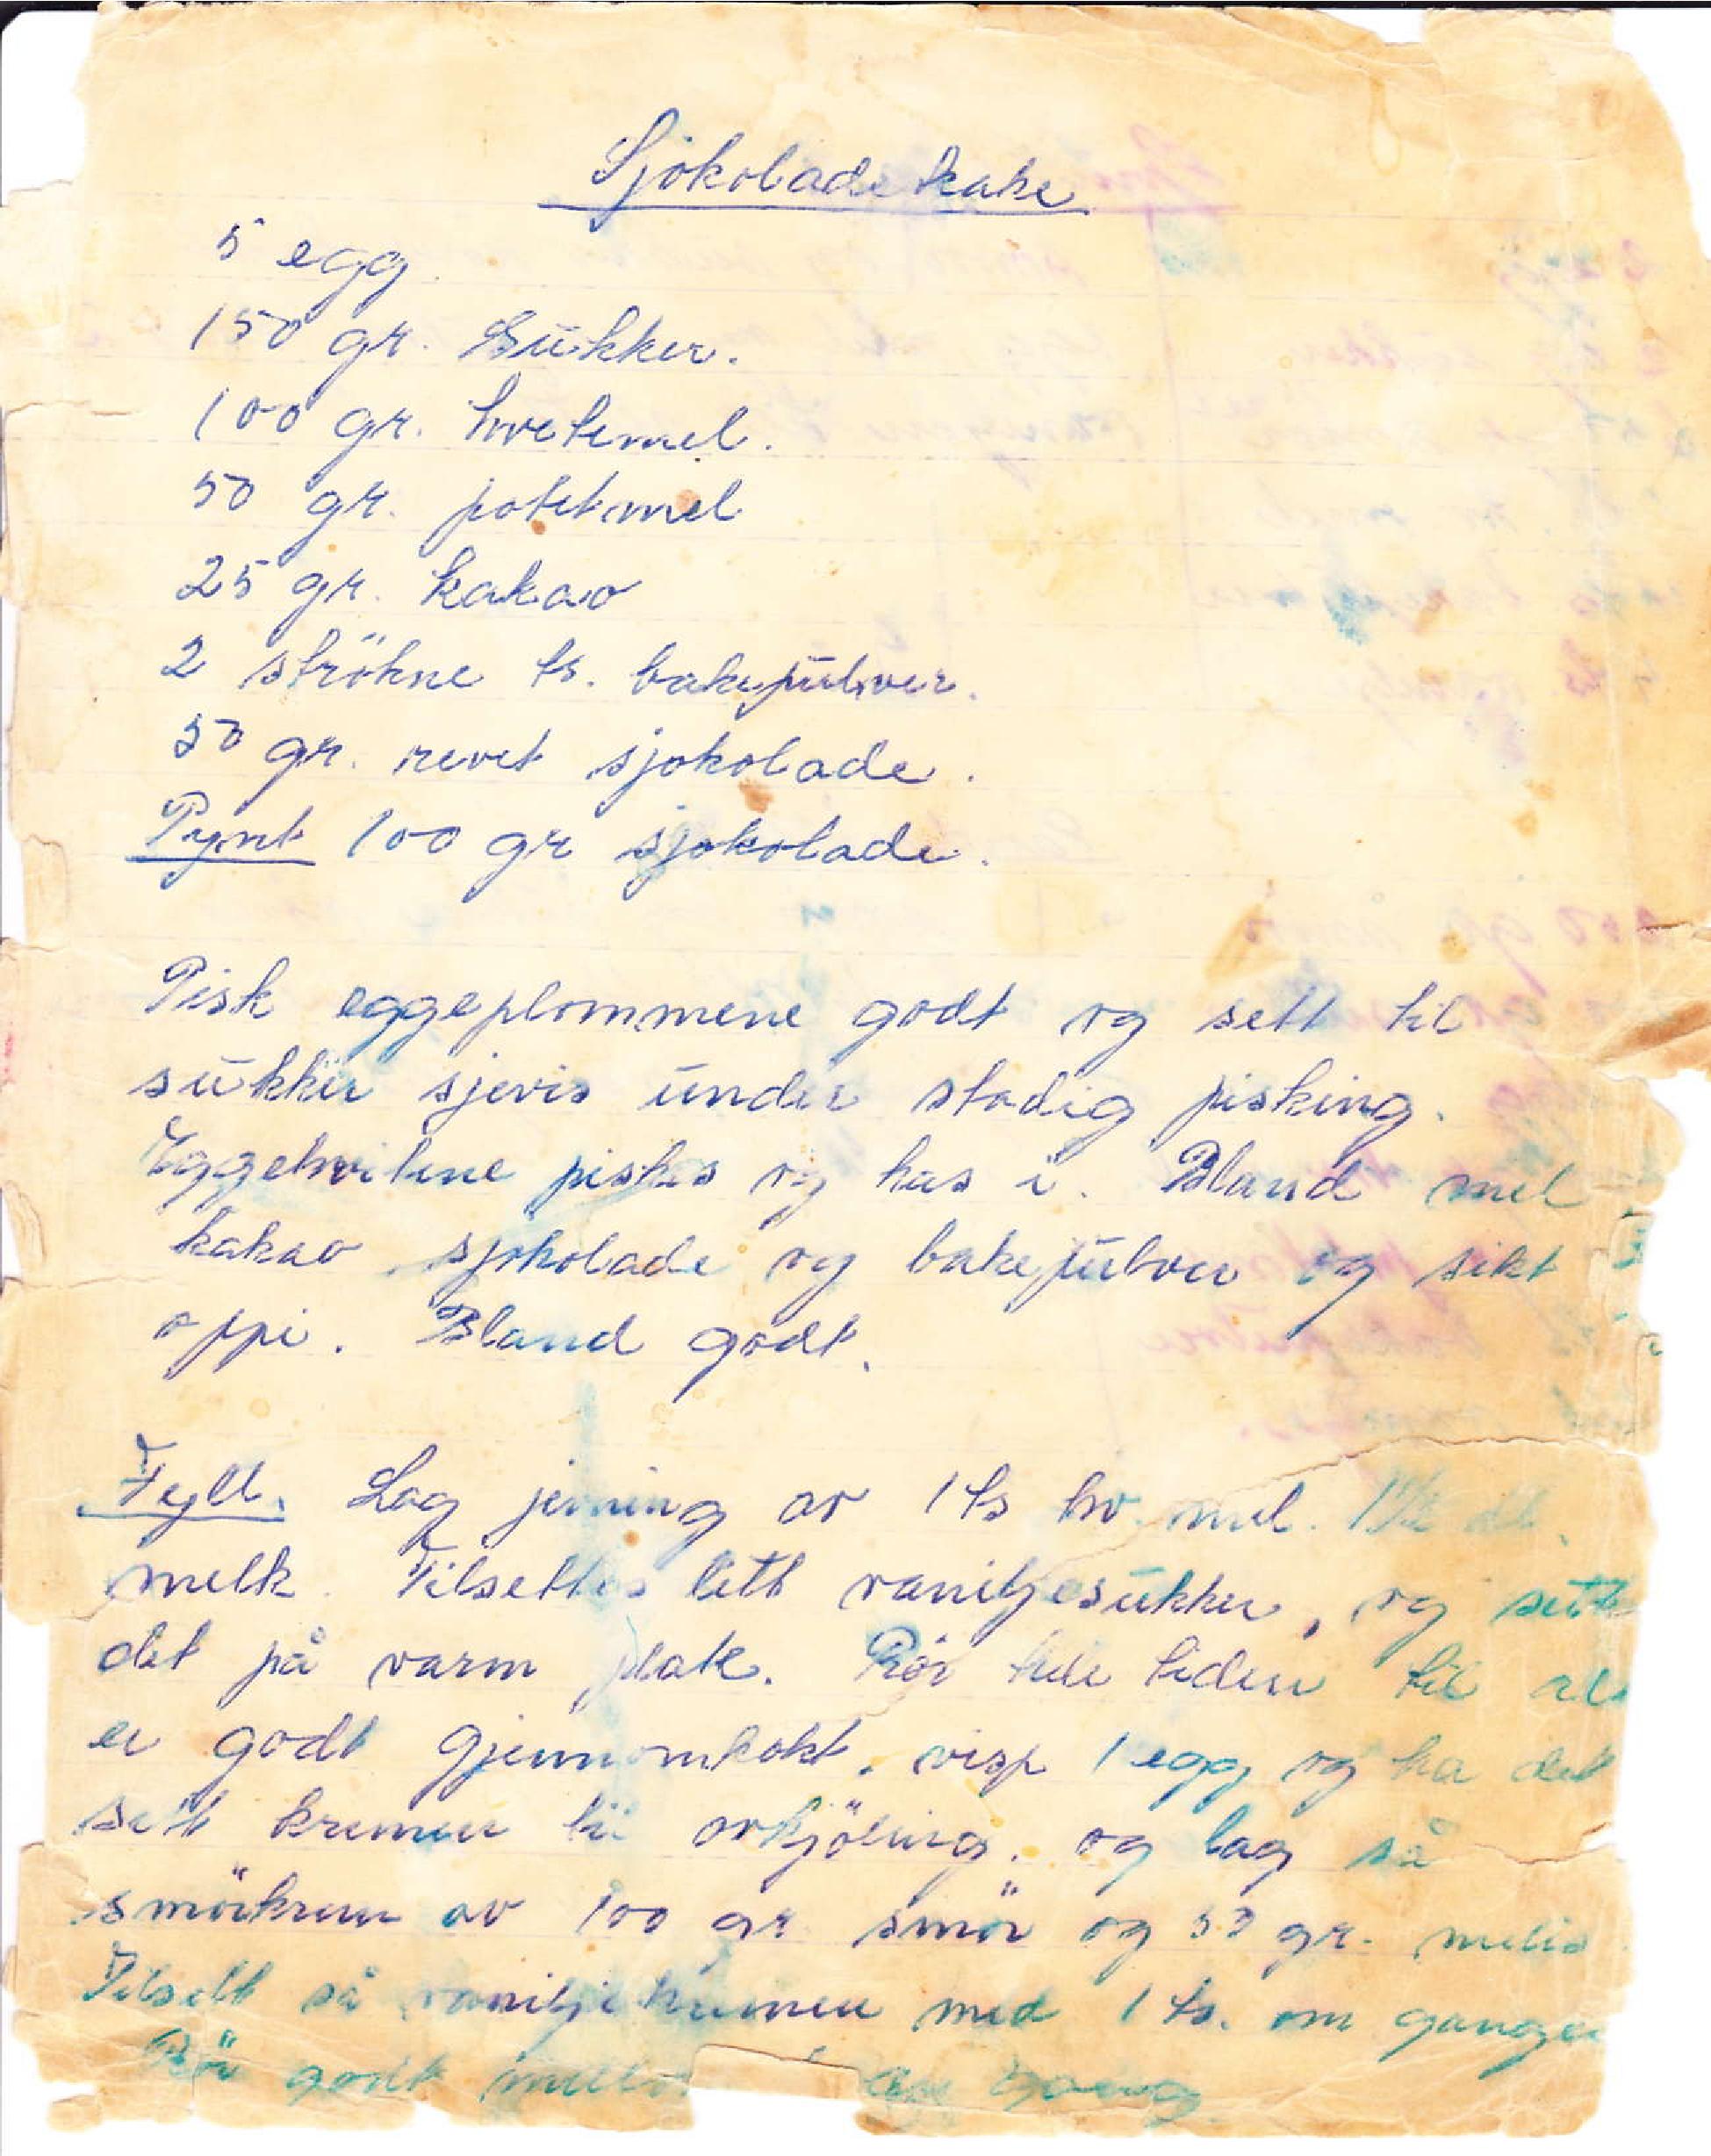 Sjokolade kake
5 egg.
150 gr. Sukker.
100 gr. hvetemel.
50 gr. potetmel
25 gr. kakao
2 ströhne ts. bakepulver.
50 gr. revet sjokolade.
Pynt 100 gr sjokolade.
Pisk eggeplommene godt og sett til
sukker sjevis under stadig pisking.
Eggehvitene piskes og has i. Bland mel
kakao sjokolade og bakepulver og sikt
oppi. Bland godt.
Fyll. Lag jevning av 1 ts hv. mel. 1½ dl.
melk. Tilsettes litt vaniljesukker, og sett
det på varm plate. Rör hele tiden til alt
er godt gjennomkokt. visp 1 egg og ha det
sett kremen til avkjöling. og lag så
smörkrem av 100 gr smör og 50 gr. melis
Tilsett så vaniljekremen med 1 ts. om gangen
Rör godt gang